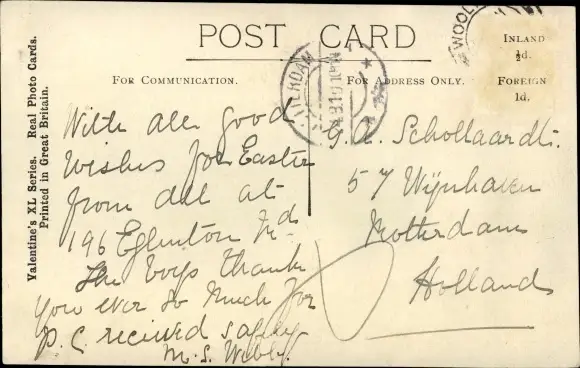 POST CARD
WOOL
INLAND
½d.
FOREIGN
1d.
FOR COMMUNICATION.
FOR ADDRESS ONLY.
Valentine's XL Series. Real Photo Cards.
Printed in Great Britain.
With all good
wishes for Easter
from all at
196 Eglinton Rd
The boys thank
you ever so much for
P.C. received safely
M. S. Webb.
57 Wijnhaven
Rotterdam
Holland